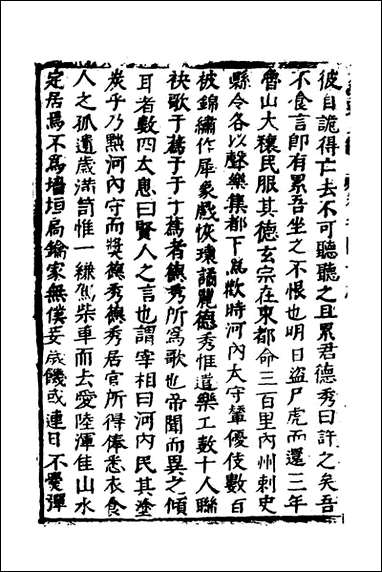 彼自詭得亡去不可聽聽之且累君德秀曰許之矣吾
不食言卽有累吾坐之不恨也明日盜尸虎而還三年
魯山大穰民服其德玄宗在東都命三百里內州刺史
縣令各以聲樂集都下爲歡時河內太守輦優伎數百
被錦繡作犀象戲恢瓌譎麗德秀惟遣樂工數十人聯
袂歌于蔿于于蔿者德秀所爲歌也帝聞而異之傾
耳者數四太息曰賢人之言也謂宰相曰河內民其塗
炭乎乃黜河內守而奬德秀德秀居官所得俸悉衣食
人之孤遺歲滿笥惟一縑駕柴車而去愛陸渾佳山水
定居焉不爲墻垣扃鑰家無僕妾歲饑或連日不㸑彈